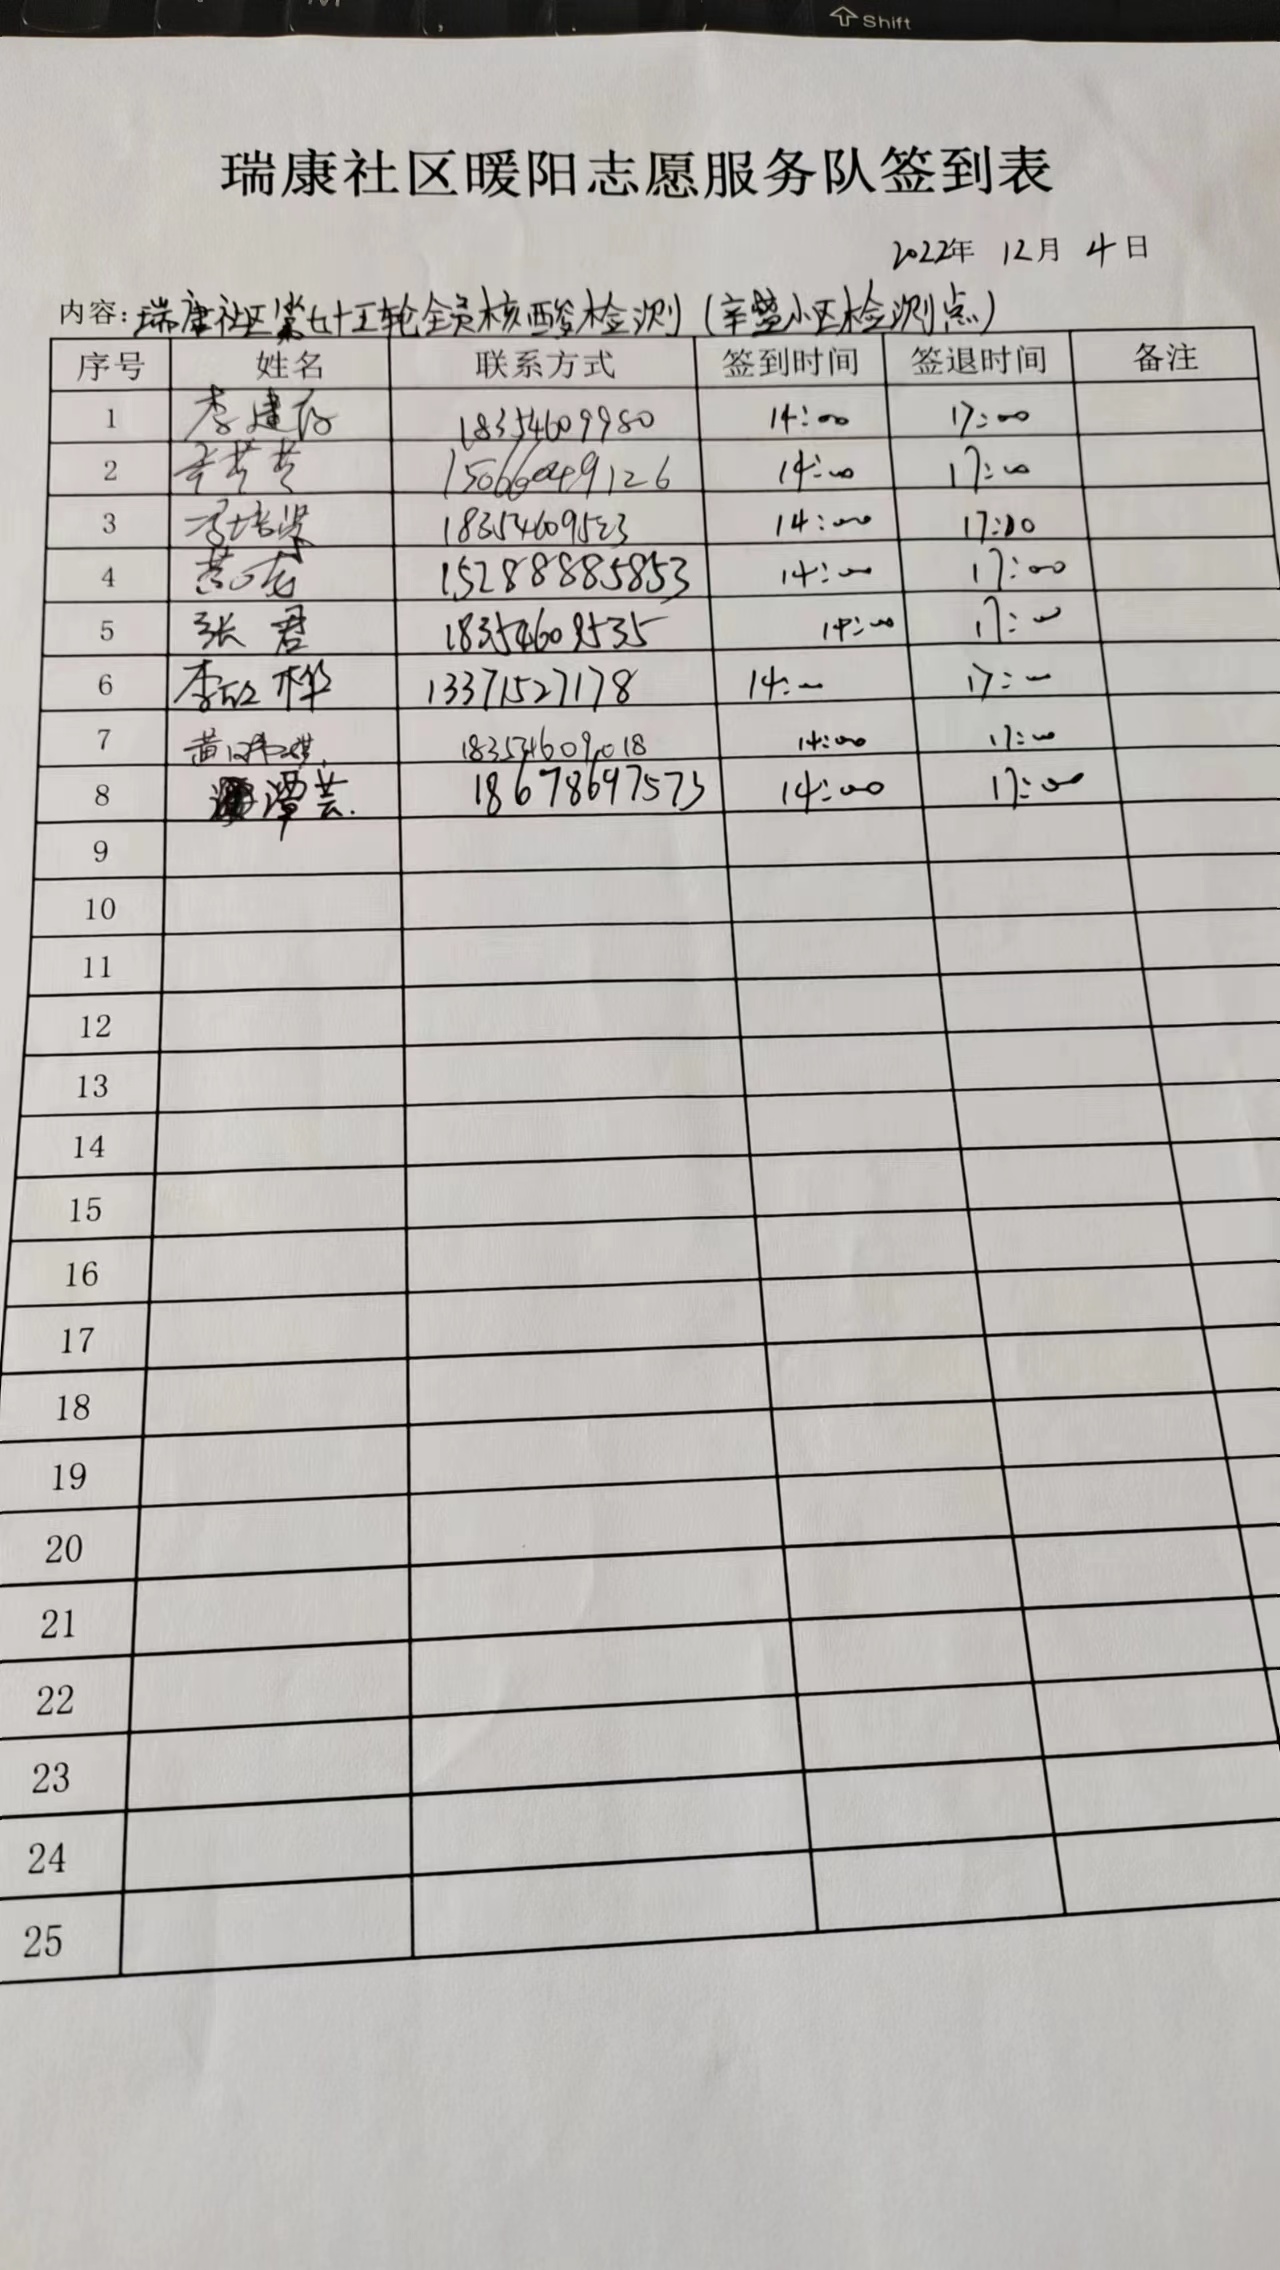 Shift
瑞康社区暖阳志愿服务队签到表
2022年 12月 4日
内容:瑞康社区第七十五轮全员核酸检测(辛盟小区检测点)
序号 姓名 联系方式 签到时间 签退时间 备注
1 李建存 18354609980 14:00 17:00
2 15066049126 14:00 17:00
3 18354609523 14:00 17:00
4 15288885853 14:00 17:00
5 张君 18354609535 14:00 17:00
6 李 桦 13371527178 14:00 17:00
7 黄 18354609018 14:00 17:00
8 潭芸. 18678697573 14:00 17:00
9
10
11
12
13
14
15
16
17
18
19
20
21
22
23
24
25